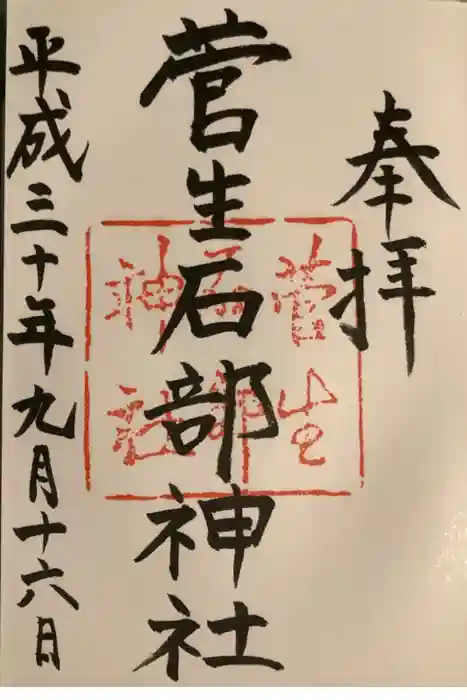 奉拝
菅生石部神社
菅生
石部
神社
平成三十年九月十六日